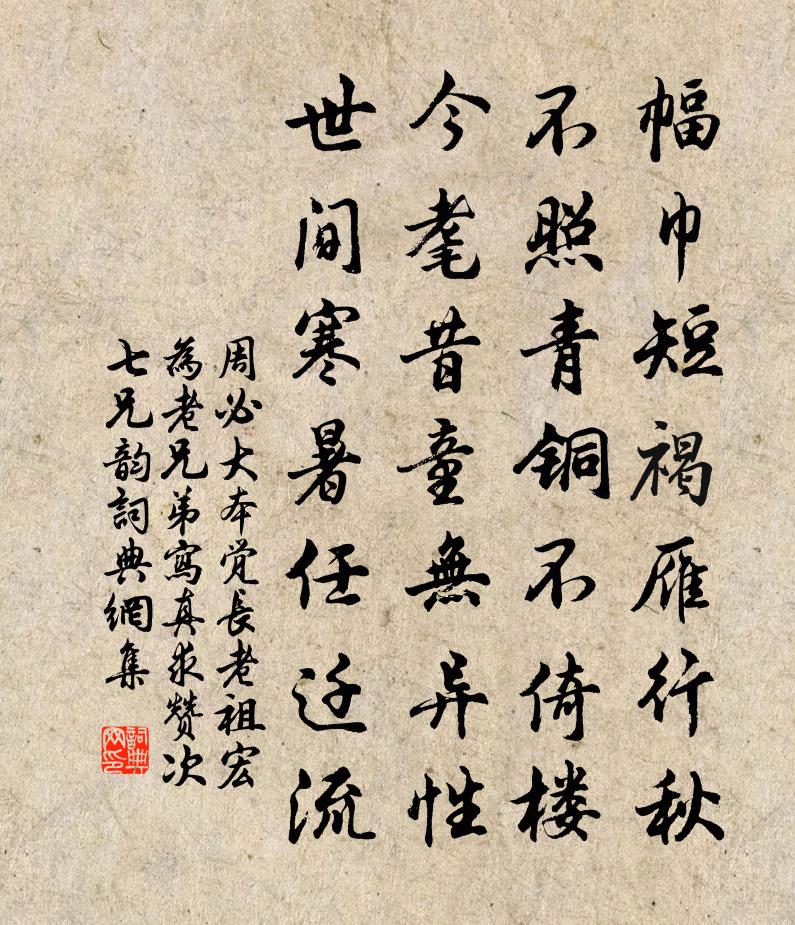 幅巾短褐雁行秋
不照青铜不倚楼
今耄昔童無异性
世间寒暑任迁流
周必大本觉長老祖宏
為老兄弟寫真求赞次
七兄韵詞典網集
詞典网印